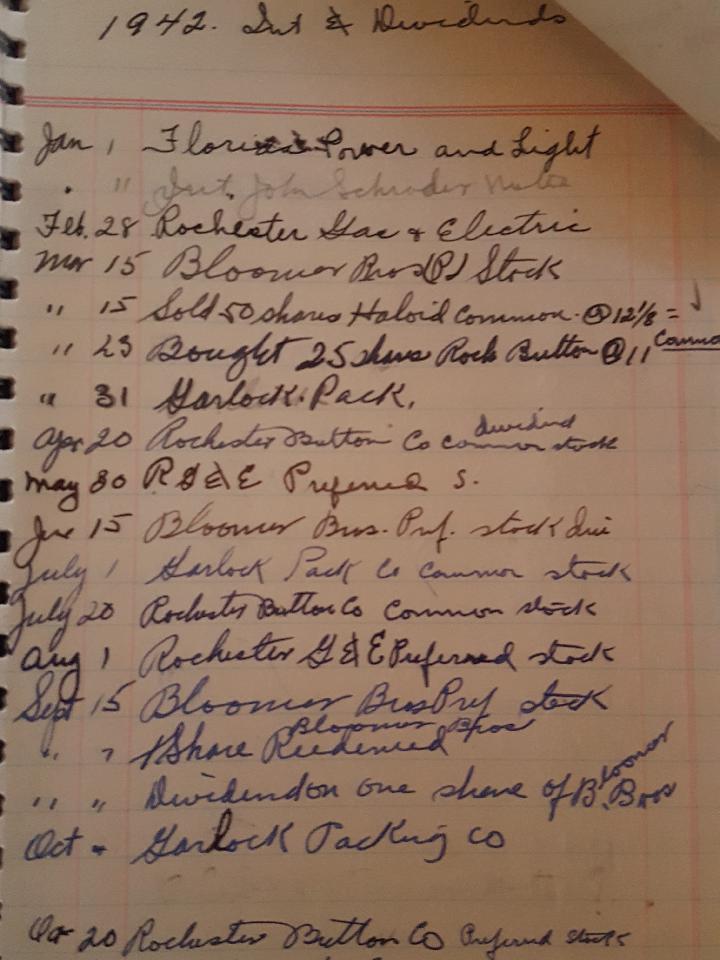 1942. Int & Dividends
Jan 1 Florida Power and Light
" " Int. John Schrader Note
Feb. 28 Rochester Gas & Electric
Mar 15 Bloomer Bros (P) Stock
" 15 Sold 50 shares Haloid Common @ 12 1/8 =
" 23 Bought 25 share Roch Button @ 11 Common
" 31 Garlock Pack.
Apr 20 Rochester Button Co Common dividend stock
May 30 R G & E Preferred S.
Jun 15 Bloomer Bros. Pref. stock div
July 1 Garlock Pack Co Common stock
July 20 Rochester Button Co Common stock
Aug 1 Rochester G & E Preferred stock
Sept 15 Bloomer Bros Pref stock
" " 1 Share Redeemed Bloomer Bros
" " Dividend on one share of Bloomer B. Bros
Oct Garlock Packing Co
Oct 20 Rochester Button Co Preferred stock